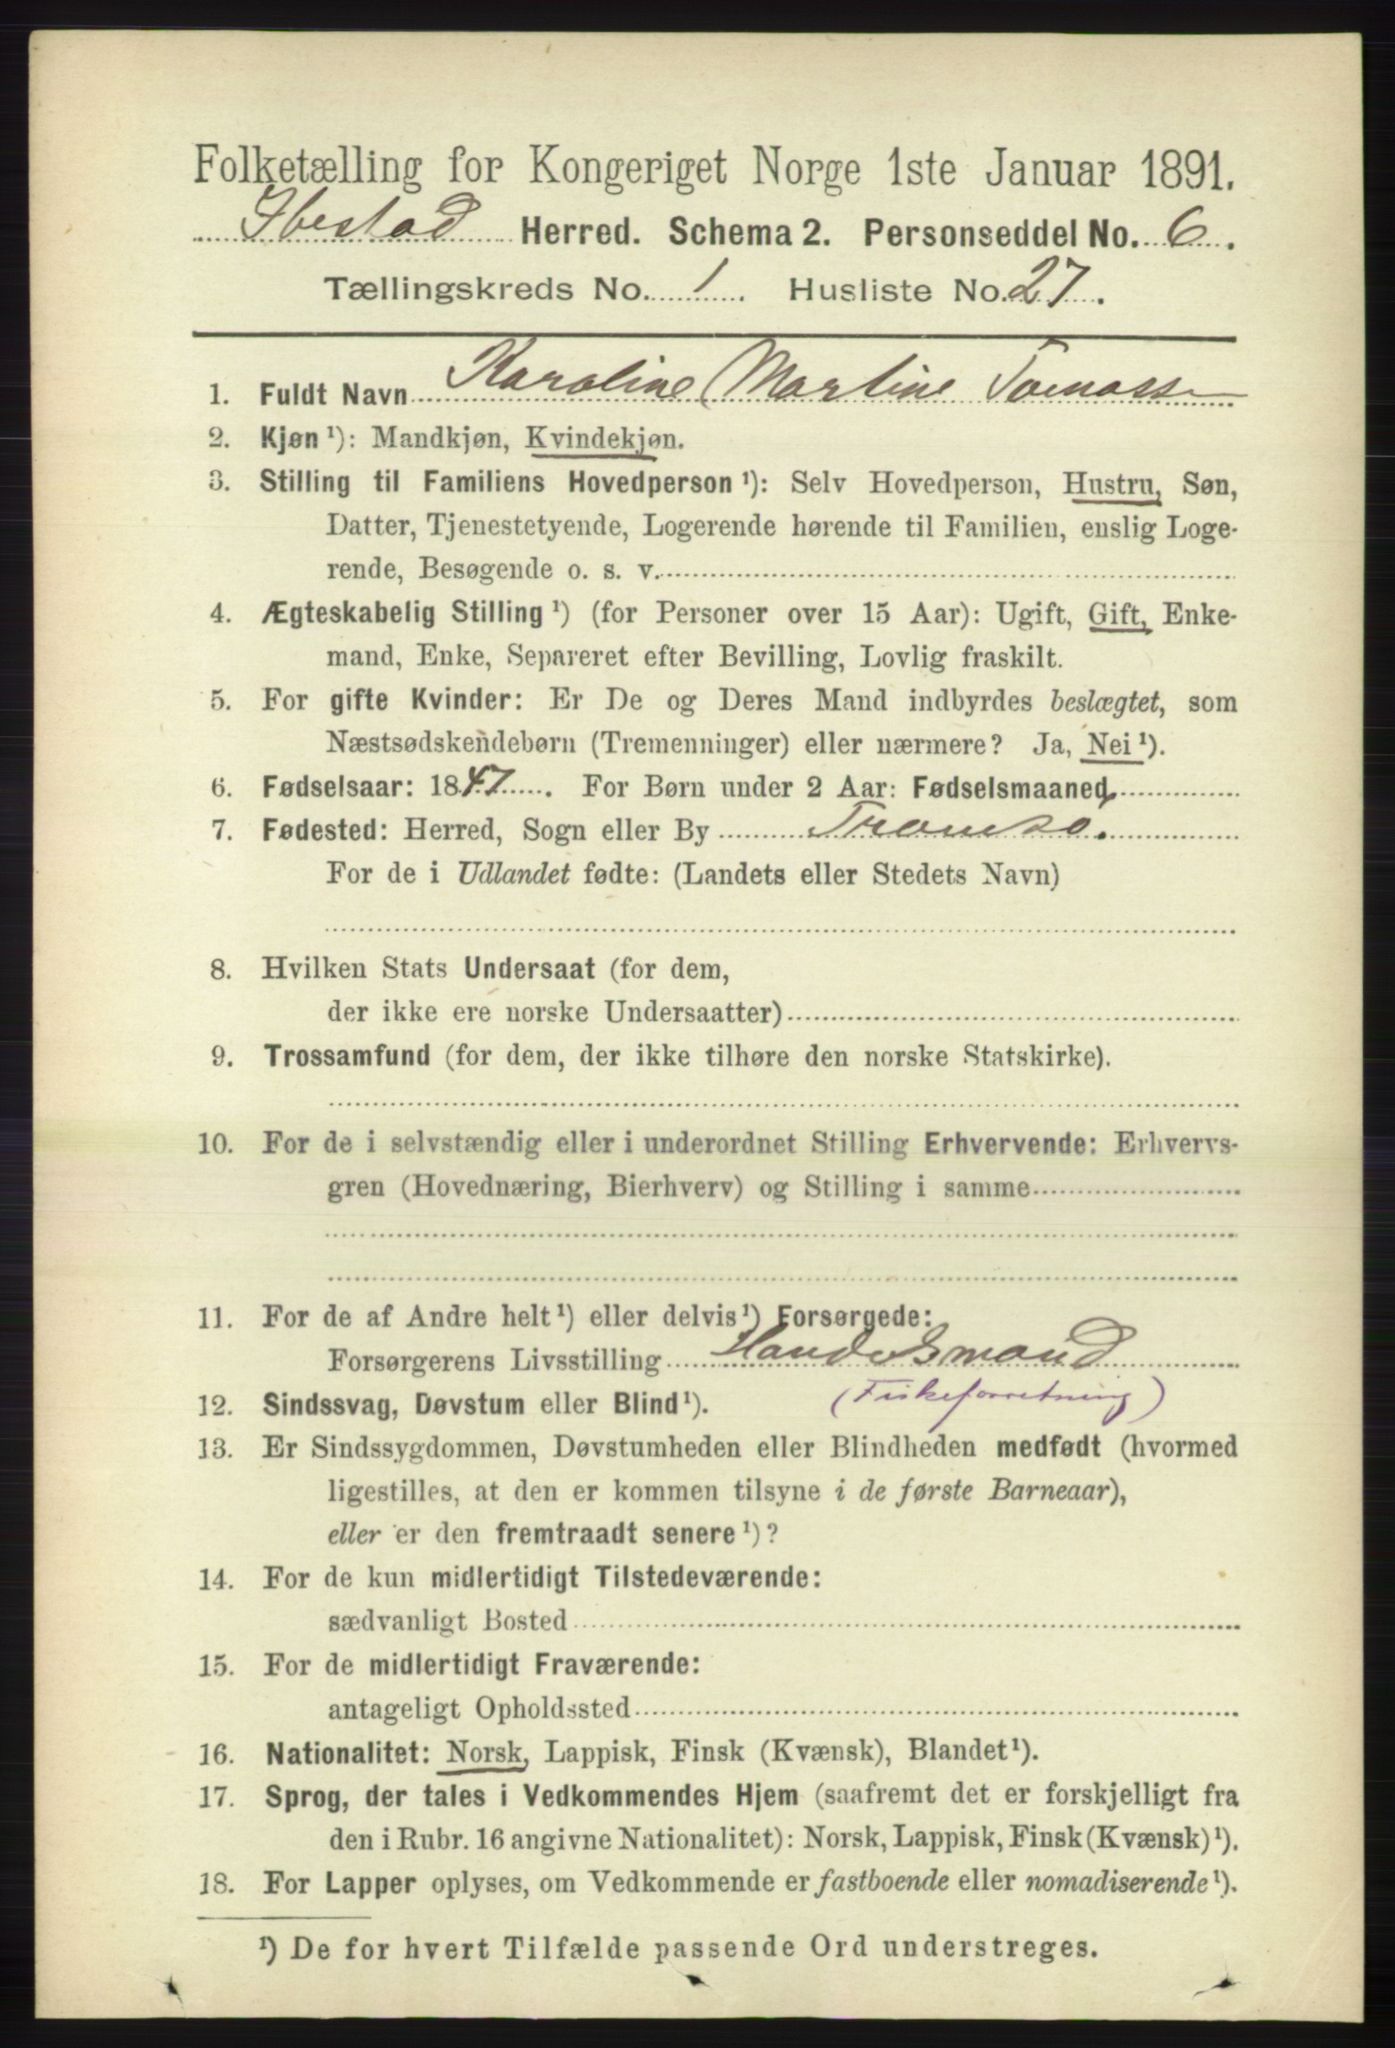 Folketælling for Kongeriget Norge 1ste Januar 1891.
Ibestad Herred. Schema 2. Personseddel No. 6.
Tællingskreds No. 1. Husliste No. 27.
1. Fuldt Navn Karoline Martine
2. Kjøn ¹): Mandkjøn, Kvindekjøn.
3. Stilling til Familiens Hovedperson ¹): Selv Hovedperson, Hustru, Søn,
Datter, Tjenestetyende, Logerende hørende til Familien, enslig Loge-
rende, Besøgende o. s. v.
4. Ægteskabelig Stilling ¹) (for Personer over 15 Aar): Ugift, Gift, Enke-
mand, Enke, Separeret efter Bevilling, Lovlig fraskilt.
5. For gifte Kvinder: Er De og Deres Mand indbyrdes beslægtet, som
Næstsødskendebørn (Tremenninger) eller nærmere? Ja, Nei ¹).
6. Fødselsaar: 1847. For Børn under 2 Aar: Fødselsmaaned
7. Fødested: Herred, Sogn eller By Tromsø.
For de i Udlandet fødte: (Landets eller Stedets Navn)
8. Hvilken Stats Undersaat (for dem,
der ikke ere norske Undersaatter)
9. Trossamfund (for dem, der ikke tilhøre den norske Statskirke).
10. For de i selvstændig eller i underordnet Stilling Erhvervende: Erhvervs-
gren (Hovednæring, Bierhverv) og Stilling i samme
11. For de af Andre helt ¹) eller delvis ¹) Forsørgede:
Forsørgerens Livsstilling Handelsmand
(Fiskeforretning)
12. Sindssvag, Døvstum eller Blind ¹).
13. Er Sindssygdommen, Døvstumheden eller Blindheden medfødt (hvormed
ligestilles, at den er kommen tilsyne i de første Barneaar),
eller er den fremtraadt senere ¹)?
14. For de kun midlertidigt Tilstedeværende:
sædvanligt Bosted
15. For de midlertidigt Fraværende:
antageligt Opholdssted
16. Nationalitet: Norsk, Lappisk, Finsk (Kvænsk), Blandet ¹).
17. Sprog, der tales i Vedkommendes Hjem (saafremt det er forskjelligt fra
den i Rubr. 16 angivne Nationalitet): Norsk, Lappisk, Finsk (Kvænsk) ¹).
18. For Lapper oplyses, om Vedkommende er fastboende eller nomadiserende ¹).
¹) De for hvert Tilfælde passende Ord understreges.